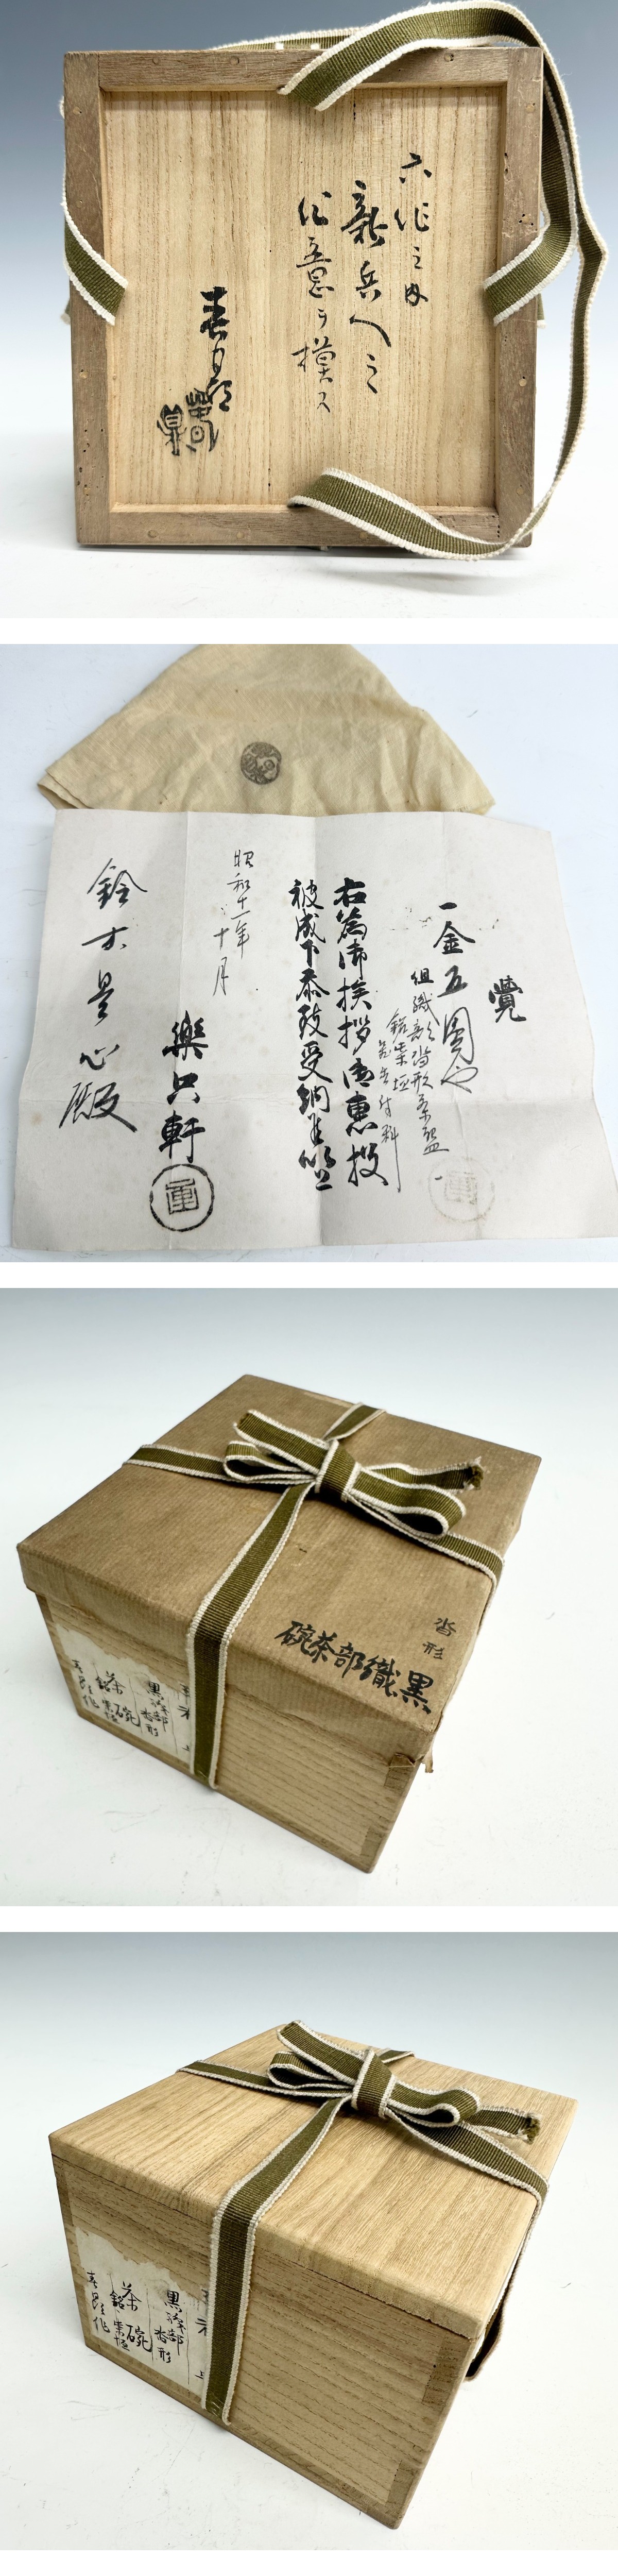 六作之内
新兵ヘ之
作意ヲ模ス
春
覺
一金五圓也
組織部沓形茶盌
銘柴垣
箱書付料
右為御挨拶御恵投
被成下忝致受納候
昭和十一年
十月
樂只軒
鈴木是心殿
沓形
黒織部茶碗
黒織部
沓形
茶碗
銘柴垣
作
黒織部
沓形
茶碗
銘柴垣
作